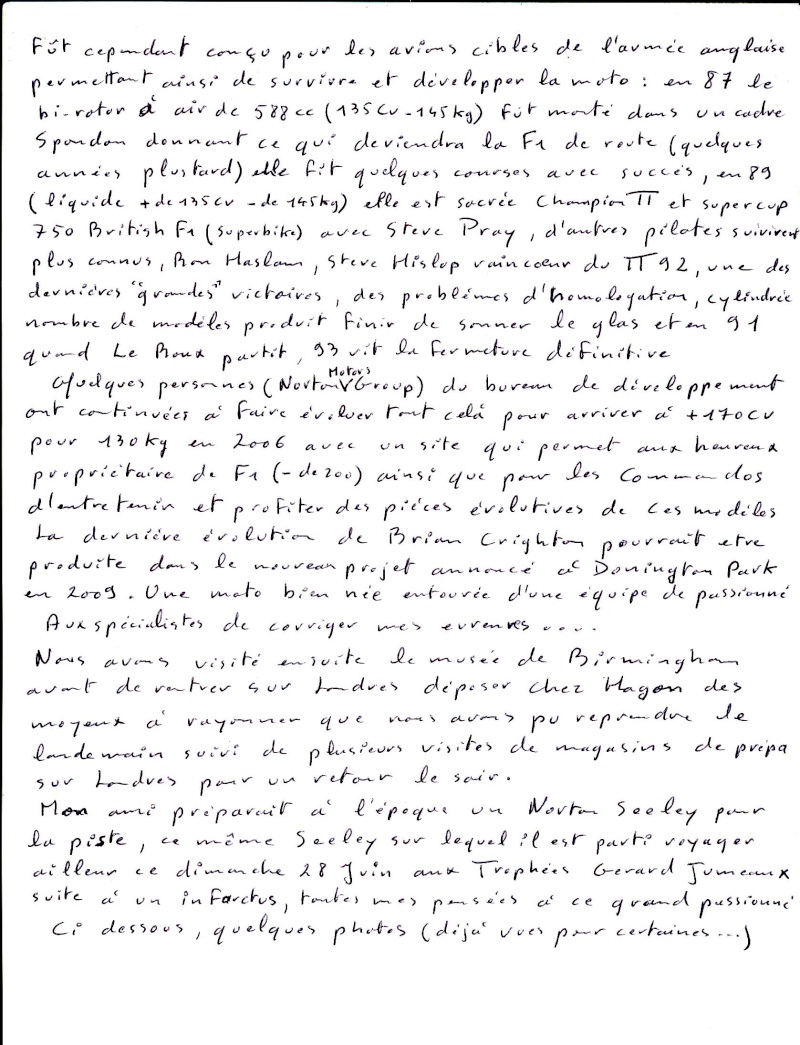 Fût cependant conçu pour les avions cibles de l'armée anglaise
permettant ainsi de survivre et développer la moto : en 87 le
bi-rotor à air de 588 cc (135cv - 145kg) fût monté dans un cadre
Spondon donnant ce qui deviendra la F1 de route (quelques
années plus tard) elle fit quelques courses avec succès, en 89
(liquide + de 135cv - de 145kg) elle est sacrée Champion TT et supercup
750 British F1 (superbike) avec Steve Pray, d'autres pilotes suivirent
plus connus, Ron Haslam, Steve Hislop vaincoeur du TT 92, une des
dernières "grandes" victoires, des problèmes d'homologation, cylindrée
nombre de modèles produit finir de sonner le glas et en 91
quand Le Roux partit, 93 vit la fermeture définitive
Quelques personnes (Norton Motors Group) du bureau de développement
ont continuées à faire évoluer tout celà pour arriver à + 170cv
pour 130kg en 2006 avec un site qui permet aux heureux
propriétaire de F1 (- de 200) ainsi que pour les Commandos
d'entretenir et profiter des pièces évolutives de ces modèles
La dernière évolution de Brian Crighton pourrait etre
produite dans le nouveau projet annoncé à Donington Park
en 2009. Une moto bien née entourée d'une équipe de passionné
Aux spécialistes de corriger mes erreures ....
Nous avons visité ensuite le musée de Birmingham
avant de rentrer sur Londres déposer chez Hagon des
moyeux à rayonner que nous avons pu reprendre le
lendemain suivi de plusieurs visites de magasins de prépa
sur Londres pour un retour le soir.
Mon ami préparait à l'époque un Norton Seeley pour
la piste, ce même Seeley sur lequel il est parti voyager
ailleur ce dimanche 28 Juin aux Trophées Gerard Jumeaux
suite à un infarctus, toutes mes pensées à ce grand passionné
Ci dessous, quelques photos (déjà vues pour certaines ...)